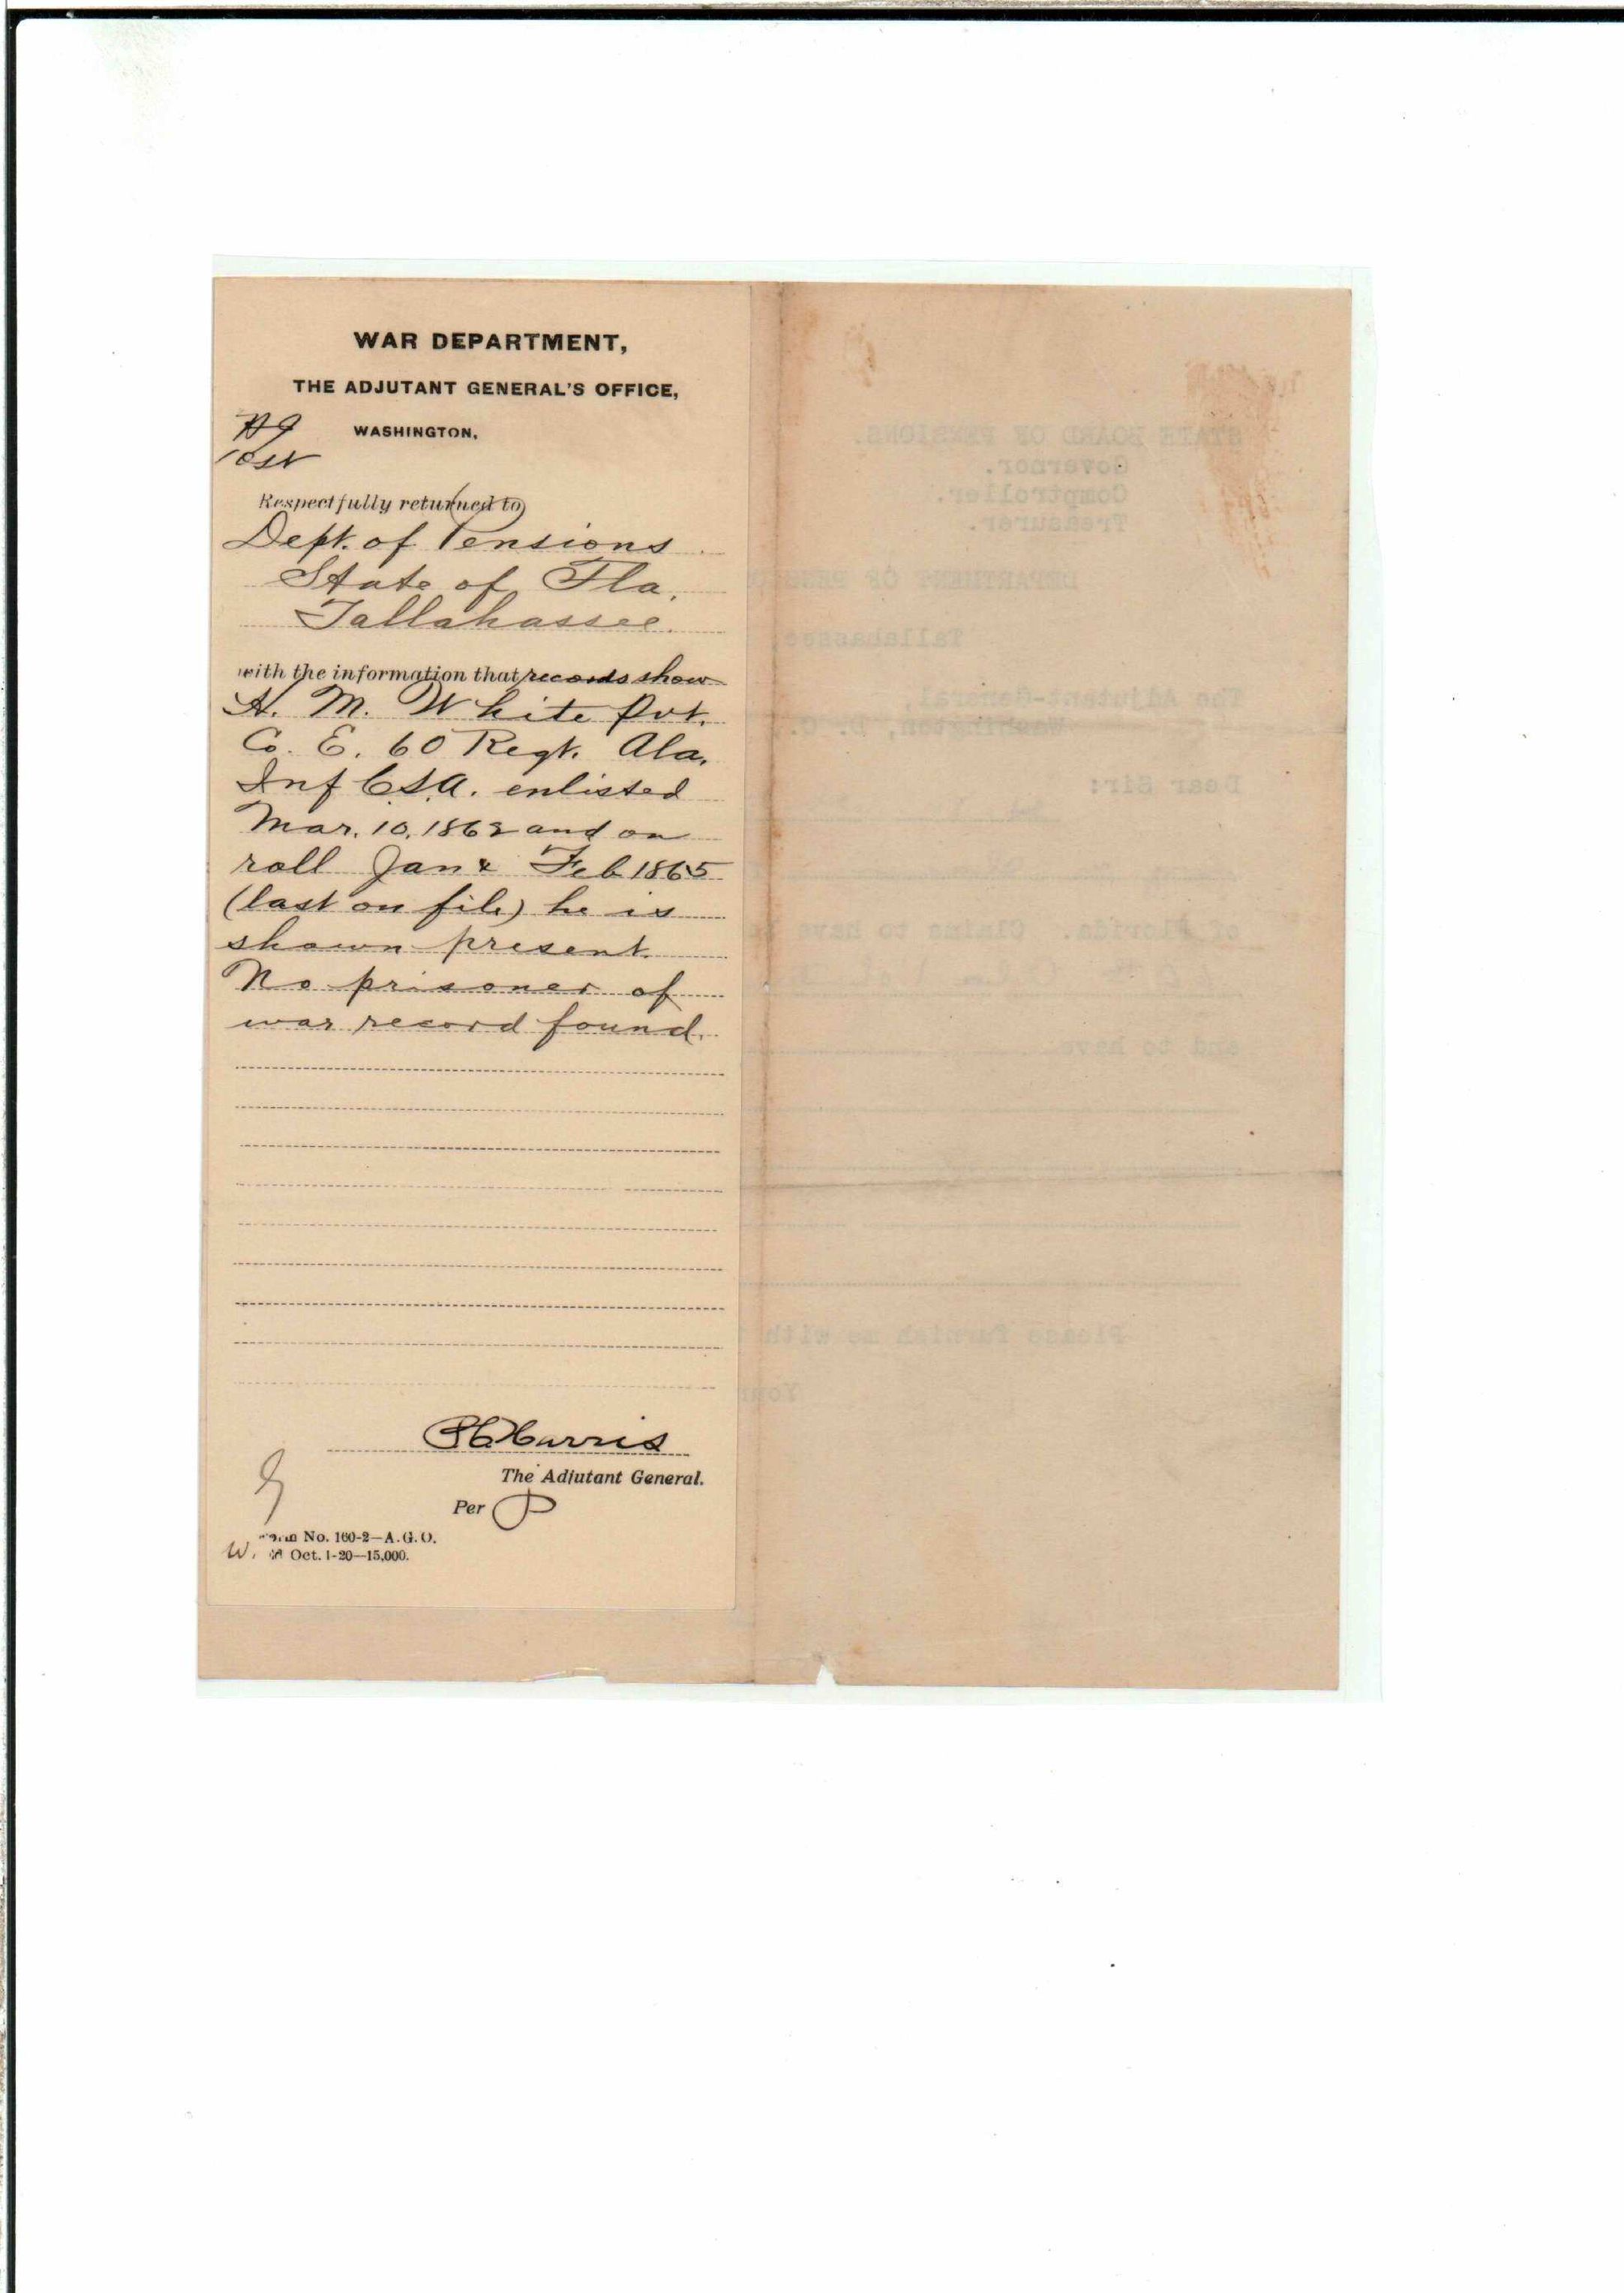 WAR DEPARTMENT,
THE ADJUTANT GENERAL'S OFFICE,
WASHINGTON,
Respectfully returned to
Dept. of Pensions
State of Fla.
Tallahassee.
with the information that records show
H. M. White Pvt.
Co. E. 60 Regt. Ala.
Inf C.S.A. enlisted
Mar. 10, 1862 and on
roll Jan & Feb 1865
(last on file) he is
shown present.
No prisoner of
war record found.
P C Harris
The Adjutant General.
Per P
No. 160-2—A.G.O.
W. Oct. 1-20—15,000.
STATE BOARD OF PENSIONS.
Governor.
Comptroller.
Treasurer.
DEPARTMENT OF
Tallahassee,
The Adjutant-General,
Washington, D. C.
Dear Sir:
of Florida. Claims to have
and to have
Please furnish me with